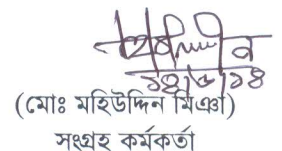 ১৪/৮/১৪
(মোঃ মহিউদ্দিন মিঞা)
সংগ্রহ কর্মকর্তা